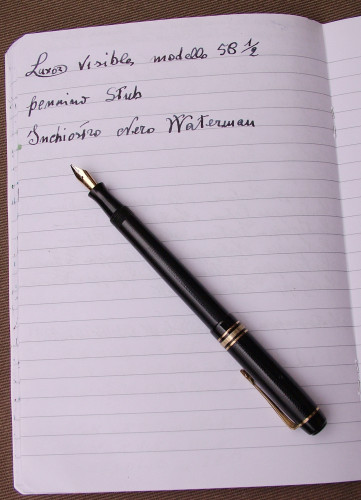 Luxor Visibles modello 58 1/2
pennino Stub
Inchiostro Nero Waterman